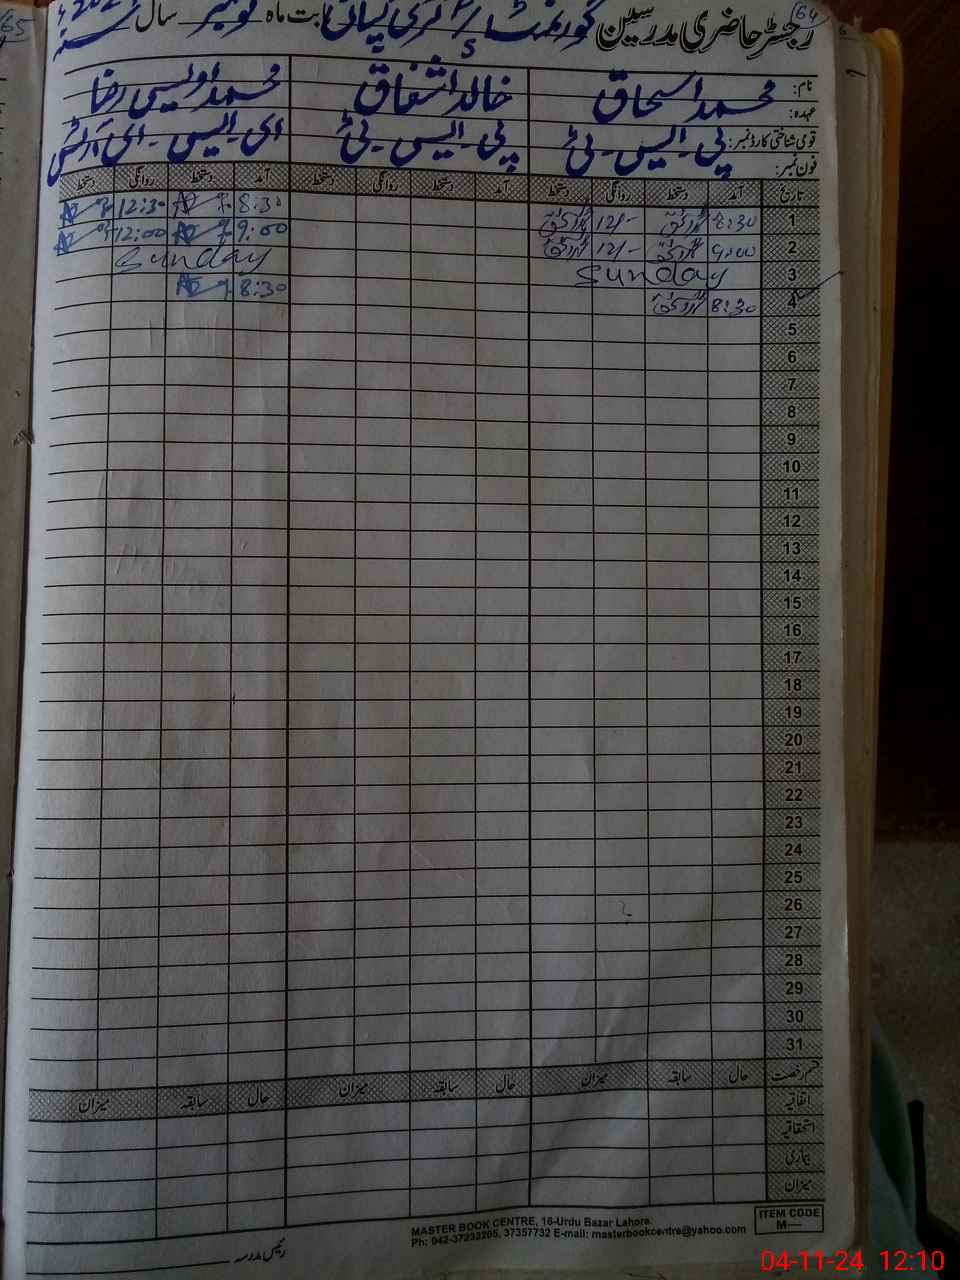 64
65
رجسٹر حاضری مدرسین گورنمنٹ پرائمری بابت ماہ نومبر سال
نام: محمد اسحاق خالد اشفاق محمد اویس رضا
عہدہ: پی۔ایس۔ٹی پی۔ایس۔ٹی ای۔ایس۔ای
قومی شناختی کارڈ نمبر:
فون نمبر:
تاریخ آمد دستخط روانگی دستخط آمد دستخط روانگی دستخط آمد دستخط روانگی دستخط
1 8:30 12/- 8:30 12:30
2 9:00 12/- 9:00 12:00
3 Sunday Sunday
4 8:30 8:30
5
6
7
8
9
10
11
12
13
14
15
16
17
18
19
20
21
22
23
24
25
26
27
28
29
30
31
قسم رخصت حال سابقہ میزان حال سابقہ میزان حال سابقہ میزان
اتفاقیہ
استحقاقیہ
بیماری
میزان
ITEM CODE
M—
MASTER BOOK CENTRE, 16-Urdu Bazar Lahore.
Ph: 042-37233205, 37357732 E-mail: masterbookcentre@yahoo.com
رئیس مدرسہ
04-11-24 12:10